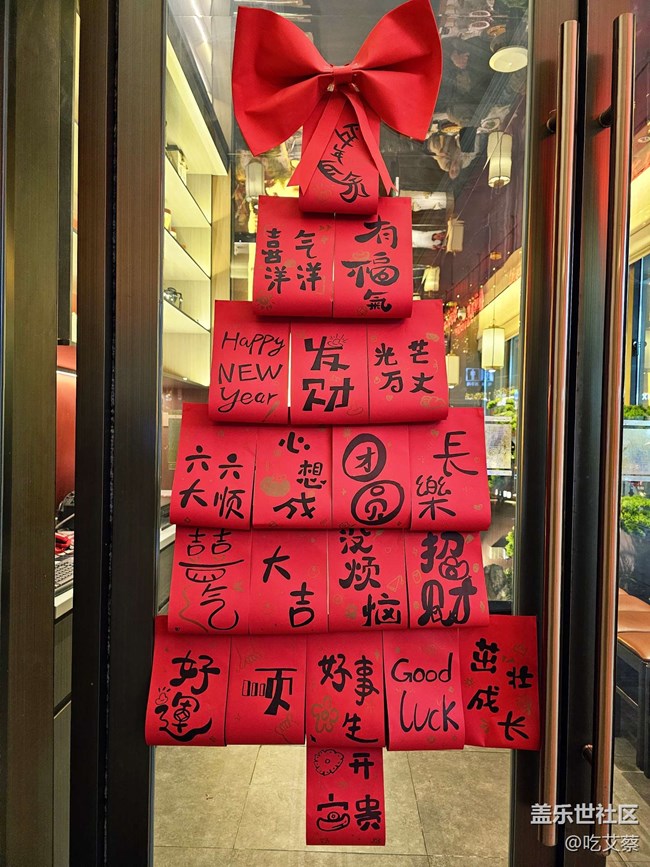 年年有余
喜气洋洋
有福氣
Happy
NEW
Year
发财
光芒万丈
六六大顺
心想成
团圆
長樂
大吉
没烦恼
招财
好運
顺
好事生
Good
Luck
茁壮成长
开富贵
盖乐世社区
@吃艾蔡